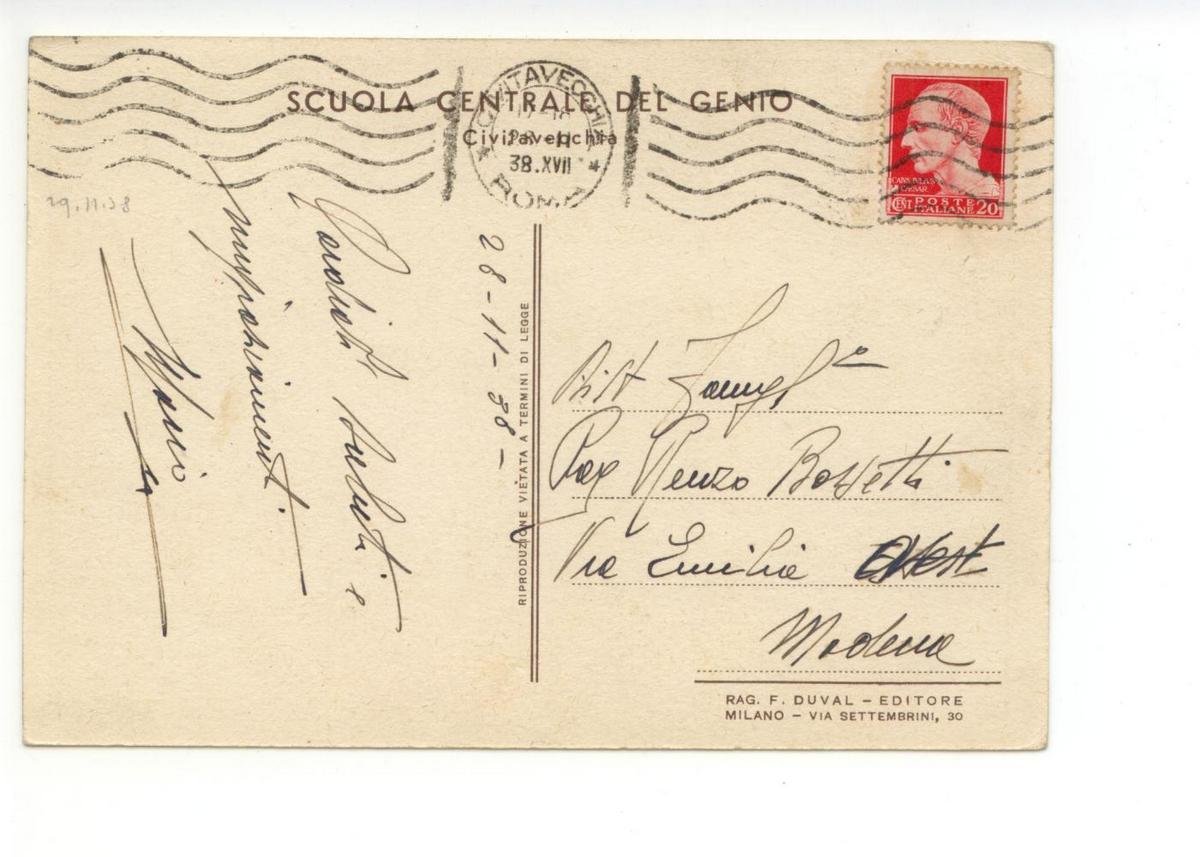 SCUOLA CENTRALE DEL GENIO
Civitavecchia
CIVITAVECCHIA
28-11
38.XVII
ROMA
CAIVS IVLIVS
CAESAR
CENT POSTE
ITALIANE 20
29.11.38
28-11-38-
Cordiali saluti e
Mario
RIPRODUZIONE VIETATA A TERMINI DI LEGGE
Dist Famigl
Rag Renzo Bossetti
Via Emilia Ovest
Modena
RAG. F. DUVAL – EDITORE
MILANO – VIA SETTEMBRINI, 30